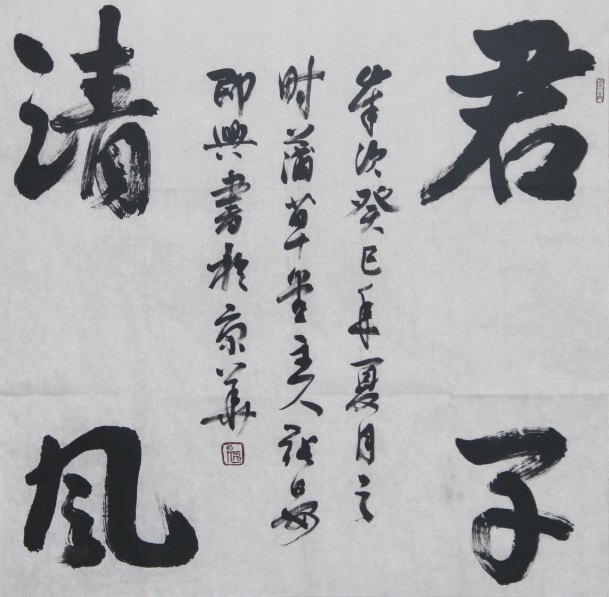 君子
清风
岁次癸巳年夏月之
时蒲草堂主人
即興書於京華